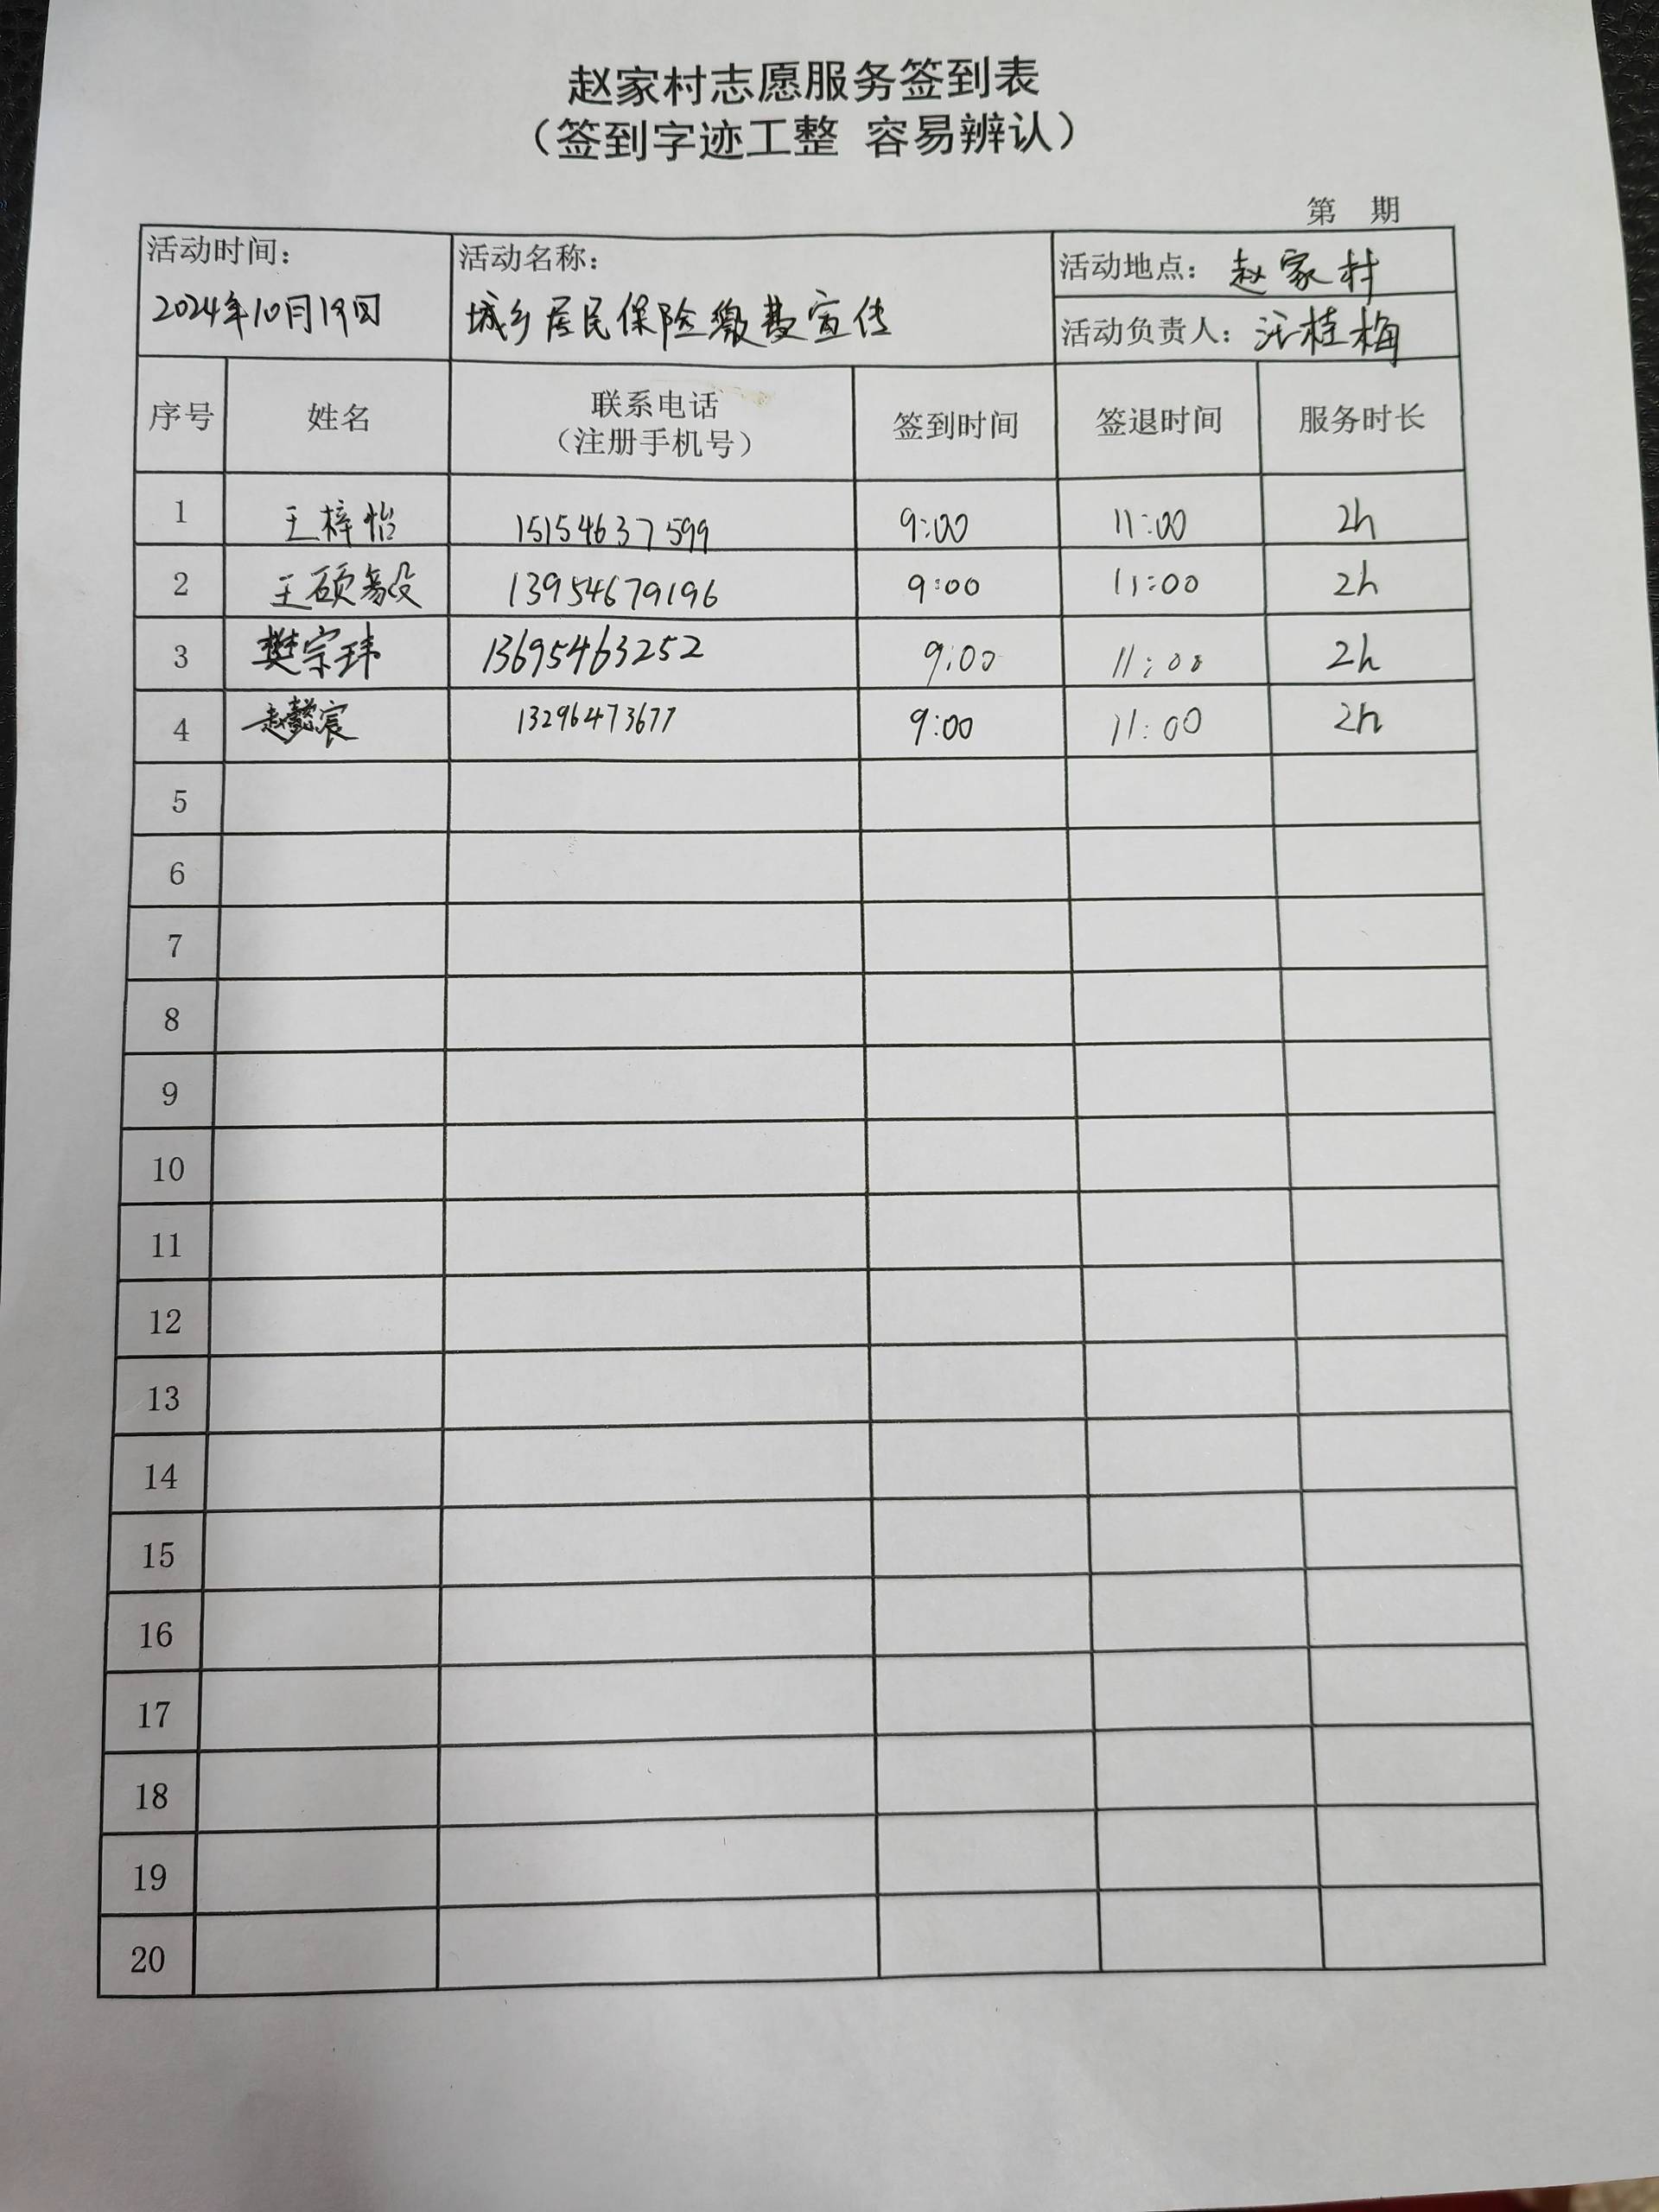 赵家村志愿服务签到表
（签到字迹工整 容易辨认）
第 期
活动时间：
2024年10月19日
活动名称：
城乡居民保险缴费宣传
活动地点：赵家村
活动负责人：汪桂梅
序号 姓名 联系电话 （注册手机号） 签到时间 签退时间 服务时长
1 王梓怡 15154637599 9:00 11:00 2h
2 王硕毅 13954679196 9:00 11:00 2h
3 樊宗玮 13695463252 9:00 11:00 2h
4 赵懿宸 13296473677 9:00 11:00 2h
5
6
7
8
9
10
11
12
13
14
15
16
17
18
19
20